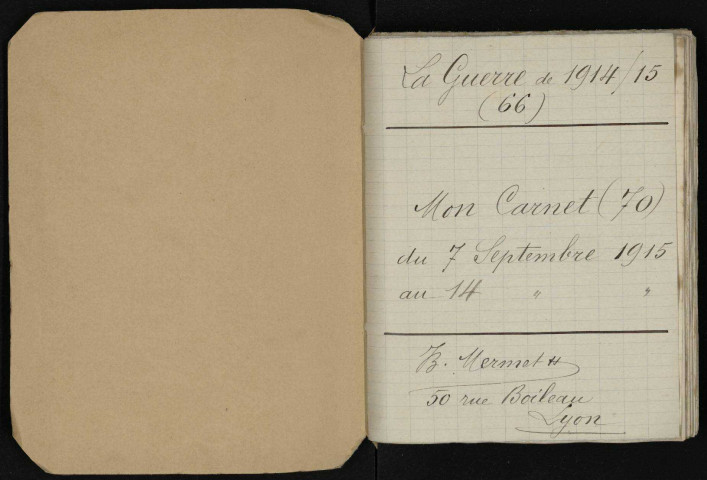 La Guerre de 1914/15
(66)
Mon Carnet (70)
du 7 Septembre 1915
au 14 " "
B. Mermet
50 rue Boileau
Lyon